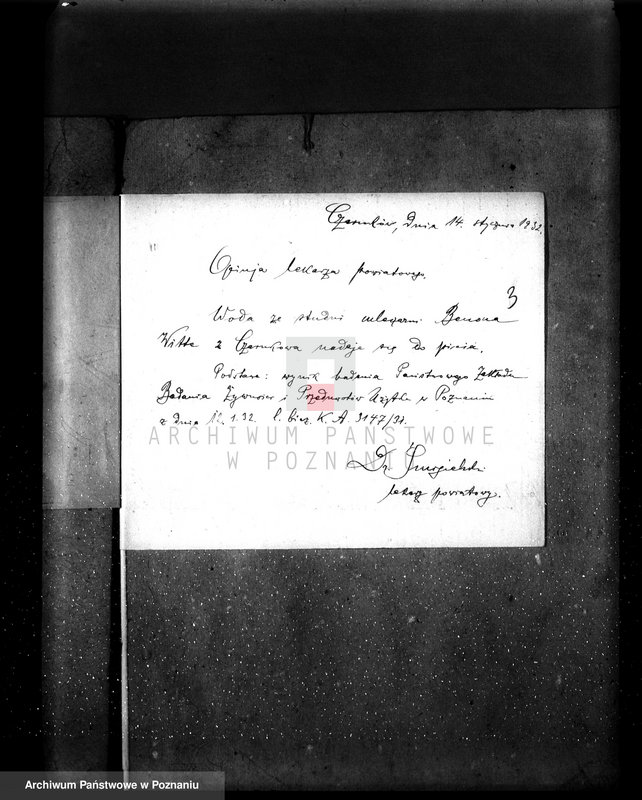 Czarnków, dnia 14. stycznia 1932.
Opinja lekarza powiatowego.
3
Woda ze studni mleczarni Benona
Witte z Czarnkowa nadaje się do picia.
Podstawa: wynik badania Państwowego Zakładu
Badania Żywności i Przedmiotów Użytku w Poznaniu
z dnia 12.1.32. L. bież. K. A. 3147/31.
ARCHIWUM PAŃSTWOWE
W POZNANIU
Dr.
lekarz powiatowy.
Archiwum Państwowe w Poznaniu